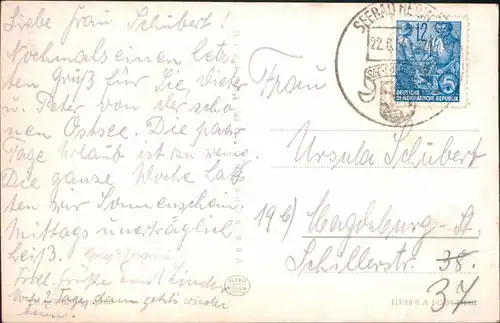 Liebe Frau Schubert!
Nochmals einen letz-
ten Gruß für Sie, Dieter
u. Peter von der schö-
nen Ostsee. Die paar
Tage Urlaub ist zu wenig.
Die ganze Woche hat-
ten wir Sonnenschein.
Mittags unerträglich
heiß.
Frdl. Grüße Ernst Linder
Noch 2 Tage, dann gehts wieder
heim!
SEEBAD HERINGS
22.6.
12
DEUTSCHE
DEMOKRATISCHE REPUBLIK
Frau
Ursula Schubert
19b) Magdeburg-St.
Schillerstr. 38.
37